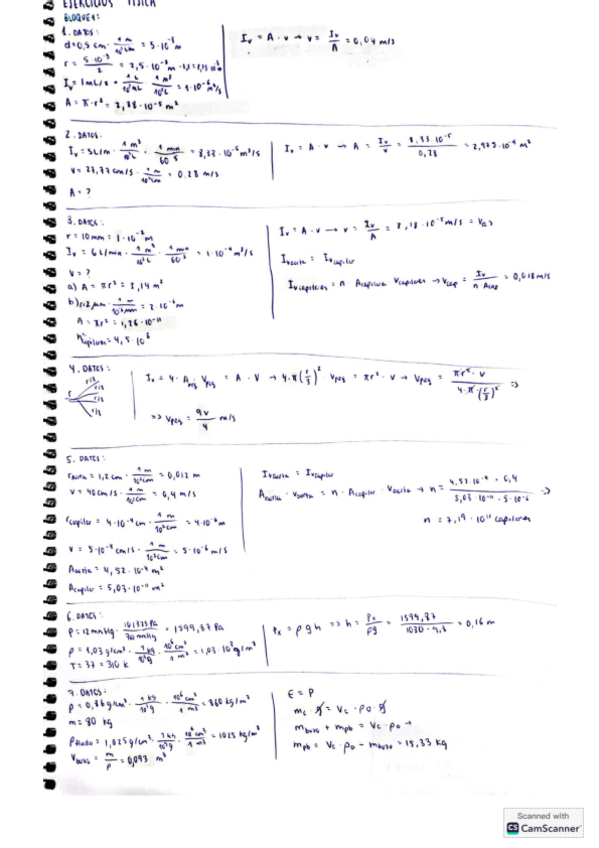 EJERCICIOS FÍSICA
BLOQUE 1:
1. DATOS:
d = 0,5 cm · 1 m / 10² cm = 5 · 10⁻³ m
r = 5 · 10⁻³ / 2 = 2,5 · 10⁻³ m
I_v = 1 mL/s · 1 L / 10³ mL · 1 m³ / 10³ L = 1 · 10⁻⁶ m³/s
A = π · r² =
I_v = A · v → v = I_v / A = 0,04 m/s
2. DATOS:
I_v = 5 L/m · 1 m³ / 10³ L · 1 min / 60 s = 8,33 · 10⁻⁵ m³/s
v = cm/s · 1 m / 10² cm = 0,28 m/s
A = ?
I_v = A · v → A = I_v / v = 8,33 · 10⁻⁵ / 0,28 = 2,975 · 10⁻⁴ m²
3. DATOS:
r = 10 mm = 1 · 10⁻² m
I_v = 6 L/min · 1 m³ / 10³ L · 1 min / 60 s = 1 · 10⁻⁴ m³/s
v = ?
a) A = πr² = 3,14 m²
b) r = 2 μm · 1 m / 10⁶ μm = 2 · 10⁻⁶ m
A = πr² = 1,26 · 10⁻¹¹
capilares = 4,5 · 10⁸
I_v = A · v → v = I_v / A =
I_v aorta = I_v capilar
I_v capilares = n A capilares v capilares → v cap = I_v / n A cap = 0,018 m/s
4. DATOS:
r
r/3
r/3
r/3
r/3
I_v = 4 · A_peq v_peq = A · v → 4 · π (r/3)² v_peq = πr² · v → v_peq = πr² · v / 4 · π · (r/3)² ⇒
⇒ v_peq = 9v / 4 m/s
5. DATOS:
r aorta = 1,2 cm · 1 m / 10² cm = 0,012 m
v = 40 cm/s · 1 m / 10² cm = 0,4 m/s
r capilar = 4 · 10⁻⁴ cm · 1 m / 10² cm = 4 · 10⁻⁶ m
v = 5 · 10⁻⁴ cm/s · 1 m / 10² cm = 5 · 10⁻⁶ m/s
A aorta = 4,52 · 10⁻⁴ m²
A capilar = 5,03 · 10⁻¹¹ m²
I_v aorta = I_v capilar
A aorta · v aorta = n · A capilar · → n = 4,52 · 10⁻⁴ · 0,4 / 5,03 · 10⁻¹¹ · 5 · 10⁻⁶ ⇒
n = 7,19 · 10¹¹ capilares
6. DATOS:
P = 12 mmHg · 101325 Pa / mmHg = 1599,87 Pa
ρ = 1,03 g/cm³ · 1 kg / 10³ g · 10⁶ cm³ / 1 m³ = 1,03 · 10³ g/m³
T = 37 = 310 K
= ρ g h ⇒ h = / ρg = 1599,87 / 1030 · 9,8 = 0,16 m
7. DATOS:
ρ = 0,86 g/cm³ · 1 kg / 10³ g · 10⁶ cm³ / 1 m³ = 860 kg/m³
m = 80 kg
ρ = 1,025 g/cm³ · 1 kg / 10³ g · 10⁶ cm³ / 1 m³ = 1025 kg/m³
= m / ρ = 0,093 m³
E = P
m_c · g = V_c · ρ_0 · g
m buzo + m pb = V_c · ρ_0 →
m pb = V_c · ρ_0 - m buzo = 15,33 kg
Scanned with
CS CamScanner